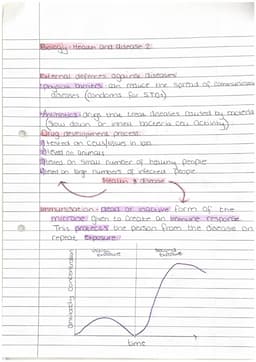 Biology: Health and disease 2
External defences against diseases
physical barriers can reduce the spread of communicable
diseases (condoms for STDs)
Antibiotics: drugs that treat diseases caused by bacteria
(slow down or inhibit bacteria cell activity)
Drug development process:
tested on cells/tissues in lab
on animals
tested on small number of healthy people
tested on large numbers of infected people
Health & disease
Immunisation: dead or inactive form of the
microbe given to create an immune response.
This protects the person from the disease on
repeat exposure
exposure
second
exposure
antibody concentration
time